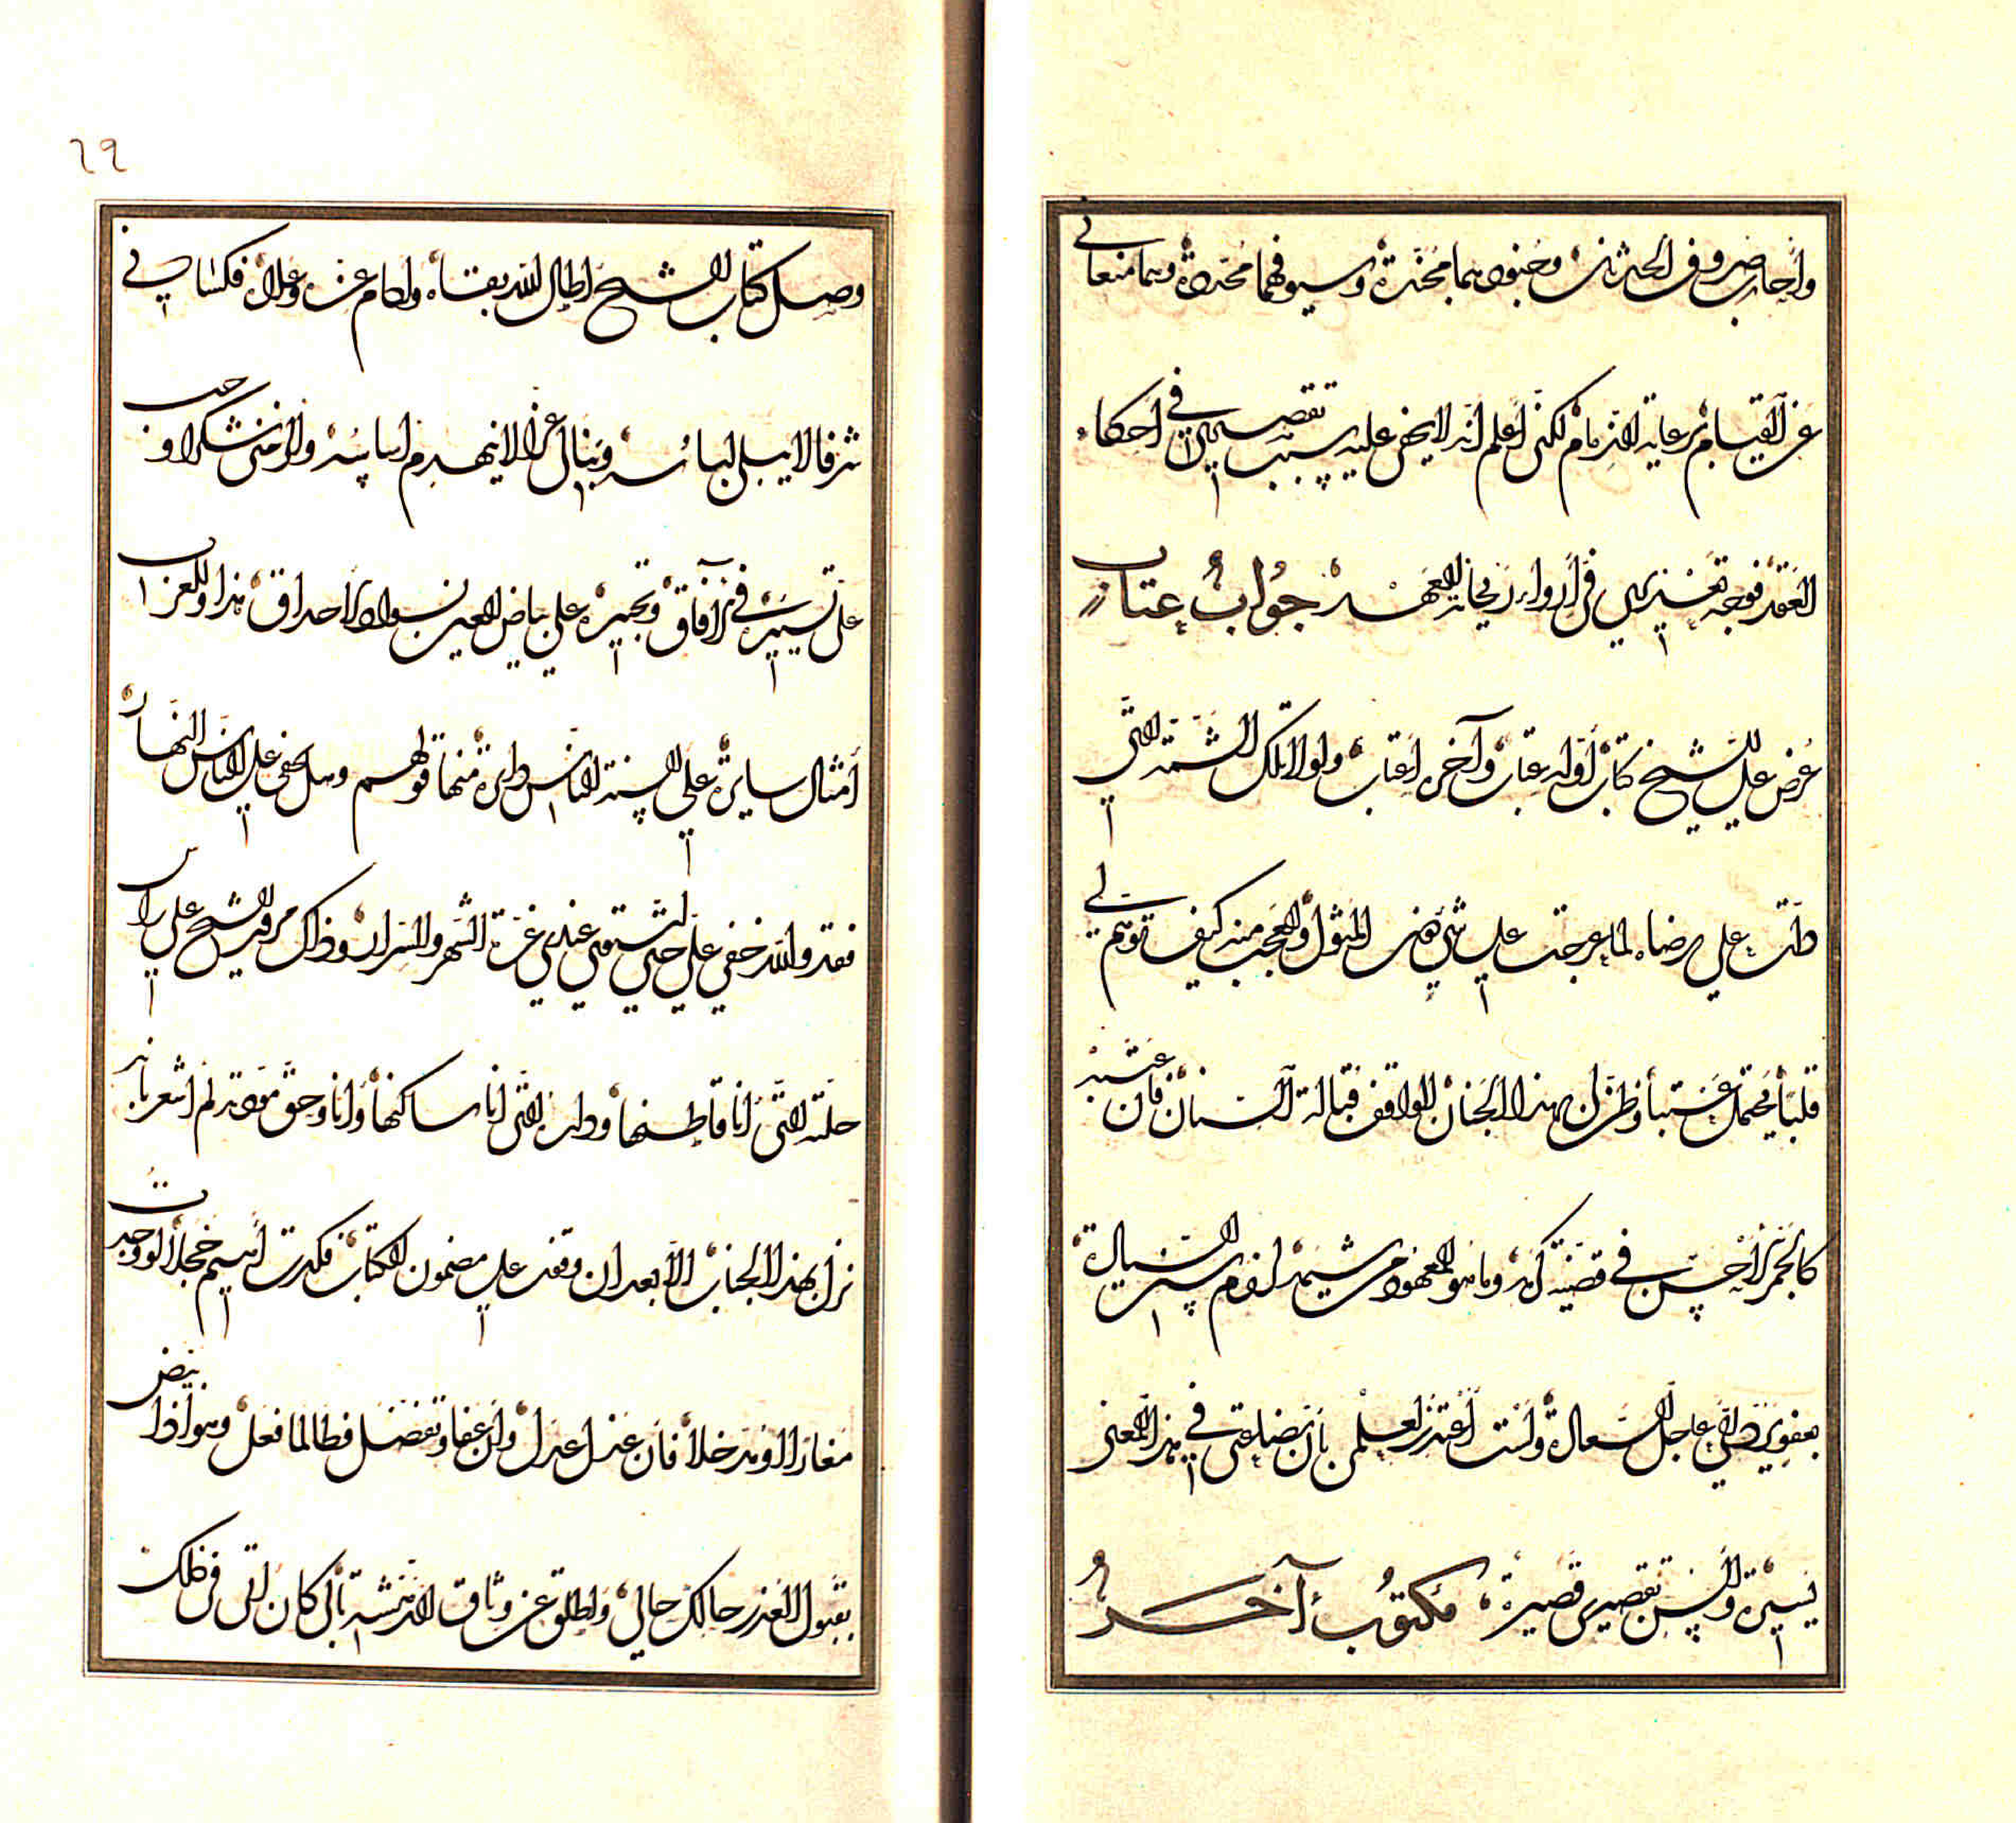 وأحارب صروف الحدثان وجنودهما مجندة وسيوفهما مجردة وهما منعاني
عن القيام برعاية الذمام لكني أعلم أنه لا يخفى عليه سبب تقصيري في احكام
العقد فوجه تقصيري في أرواء ريحانة العهد جواب عتاب
عرض علي الشيخ كتاب أوله عتاب وآخره إعتاب ولولا تلك الشمة التي
دلت علي رضاه لما عرجت علي شيء المثول والعجب منه كيف توهم لي
قلبا يحتمل عتبا وظن ان هذا الجنان الواقف قبالة السنان فان عتبه
كالجمر أحسب في قضية وما هو المعهود من شيمه السيالة
بعفو يطفي عاجل السعالة ولست أعتذر لعلمي بأن بضاعتي في هذا المعنى
يسيرة وألسن تقصيري قصيرة مكتوب آخر
٦٩
وصل كتاب الشيخ اطال الله بقاه وادام عزه وعلاه فكساني
شرفا لا يبلى لباسه وبنا لي عزا لا ينهدم اساسه والزمني شكرا وجب
علي تسييره في الآفاق وتحبيره علي بياض العين وسواد الاحداق هذا وللعرب
أمثال سايرة علي السنة الناس دايرة منها قولهم وهل يخفى علي الناس النهار
فقد والله خفي علي حتي استوي عندي غرة الشهر والسرار وذاك مر الشيخ علي راس
حلته التي انا قاطنها وداره التي انا ساكنها وانا وحق موقد لم اشعر بانه
نزل بهذا الجناب الا بعد ان وقفت علي مضمون الكتاب فكدت أسيح خجلا لو وجدت
مغارا او مدخلا فان عذل عدل وان عفا وتفضل فطالما فعل وهو اذا بيض
بقبول العذر حالك حالي واطلق عن وثاق بالي كان اتى في ذلك